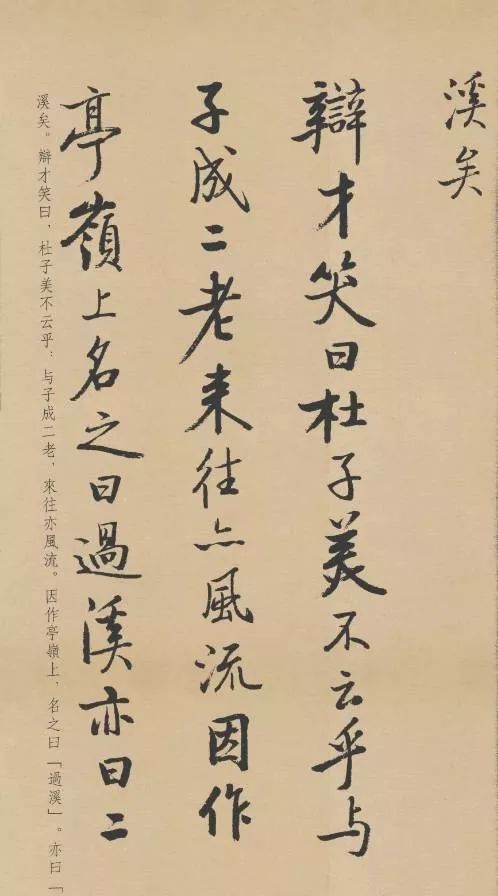 溪矣
辯才笑曰杜子美不云乎与
子成二老来往亦風流因作
亭嶺上名之曰過溪亦曰二
溪矣。辯才笑曰，杜子美不云乎：与子成二老，來往亦風流。因作亭嶺上，名之曰「過溪」。亦曰「